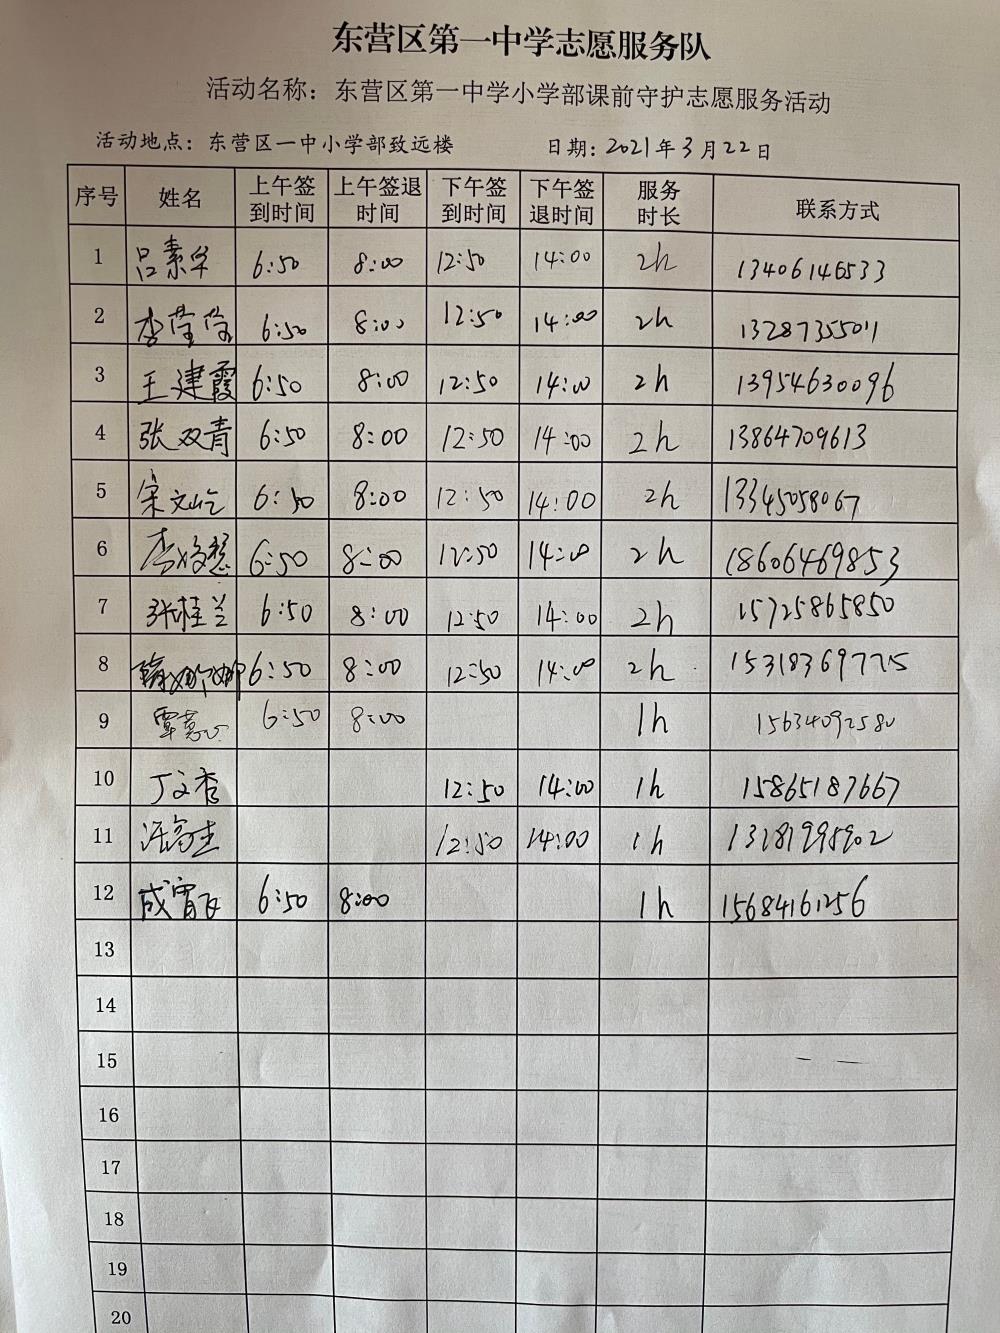 东营区第一中学志愿服务队
活动名称：东营区第一中学小学部课前守护志愿服务活动
活动地点：东营区一中小学部致远楼 日期：2021年3月22日
序号 姓名 上午签到时间 上午签退时间 下午签到时间 下午签退时间 服务时长 联系方式
1 吕素华 6:50 8:00 12:50 14:00 2h 13406146533
2 李莹莹 6:50 8:00 12:50 14:00 2h 13287355011
3 王建霞 6:50 8:00 12:50 14:00 2h 13954630096
4 张双青 6:50 8:00 12:50 14:00 2h 13864709613
5 宋文屹 6:50 8:00 12:50 14:00 2h 13345058067
6 6:50 8:00 12:50 14:00 2h 18606469853
7 张桂兰 6:50 8:00 12:50 14:00 2h 15725865850
8 6:50 8:00 12:50 14:00 2h 15318369775
9 6:50 8:00 1h 15634092580
10 丁文香 12:50 14:00 1h 15865187667
11 12:50 14:00 1h 13181995902
12 成宵飞 6:50 8:00 1h 15684161256
13
14
15
16
17
18
19
20